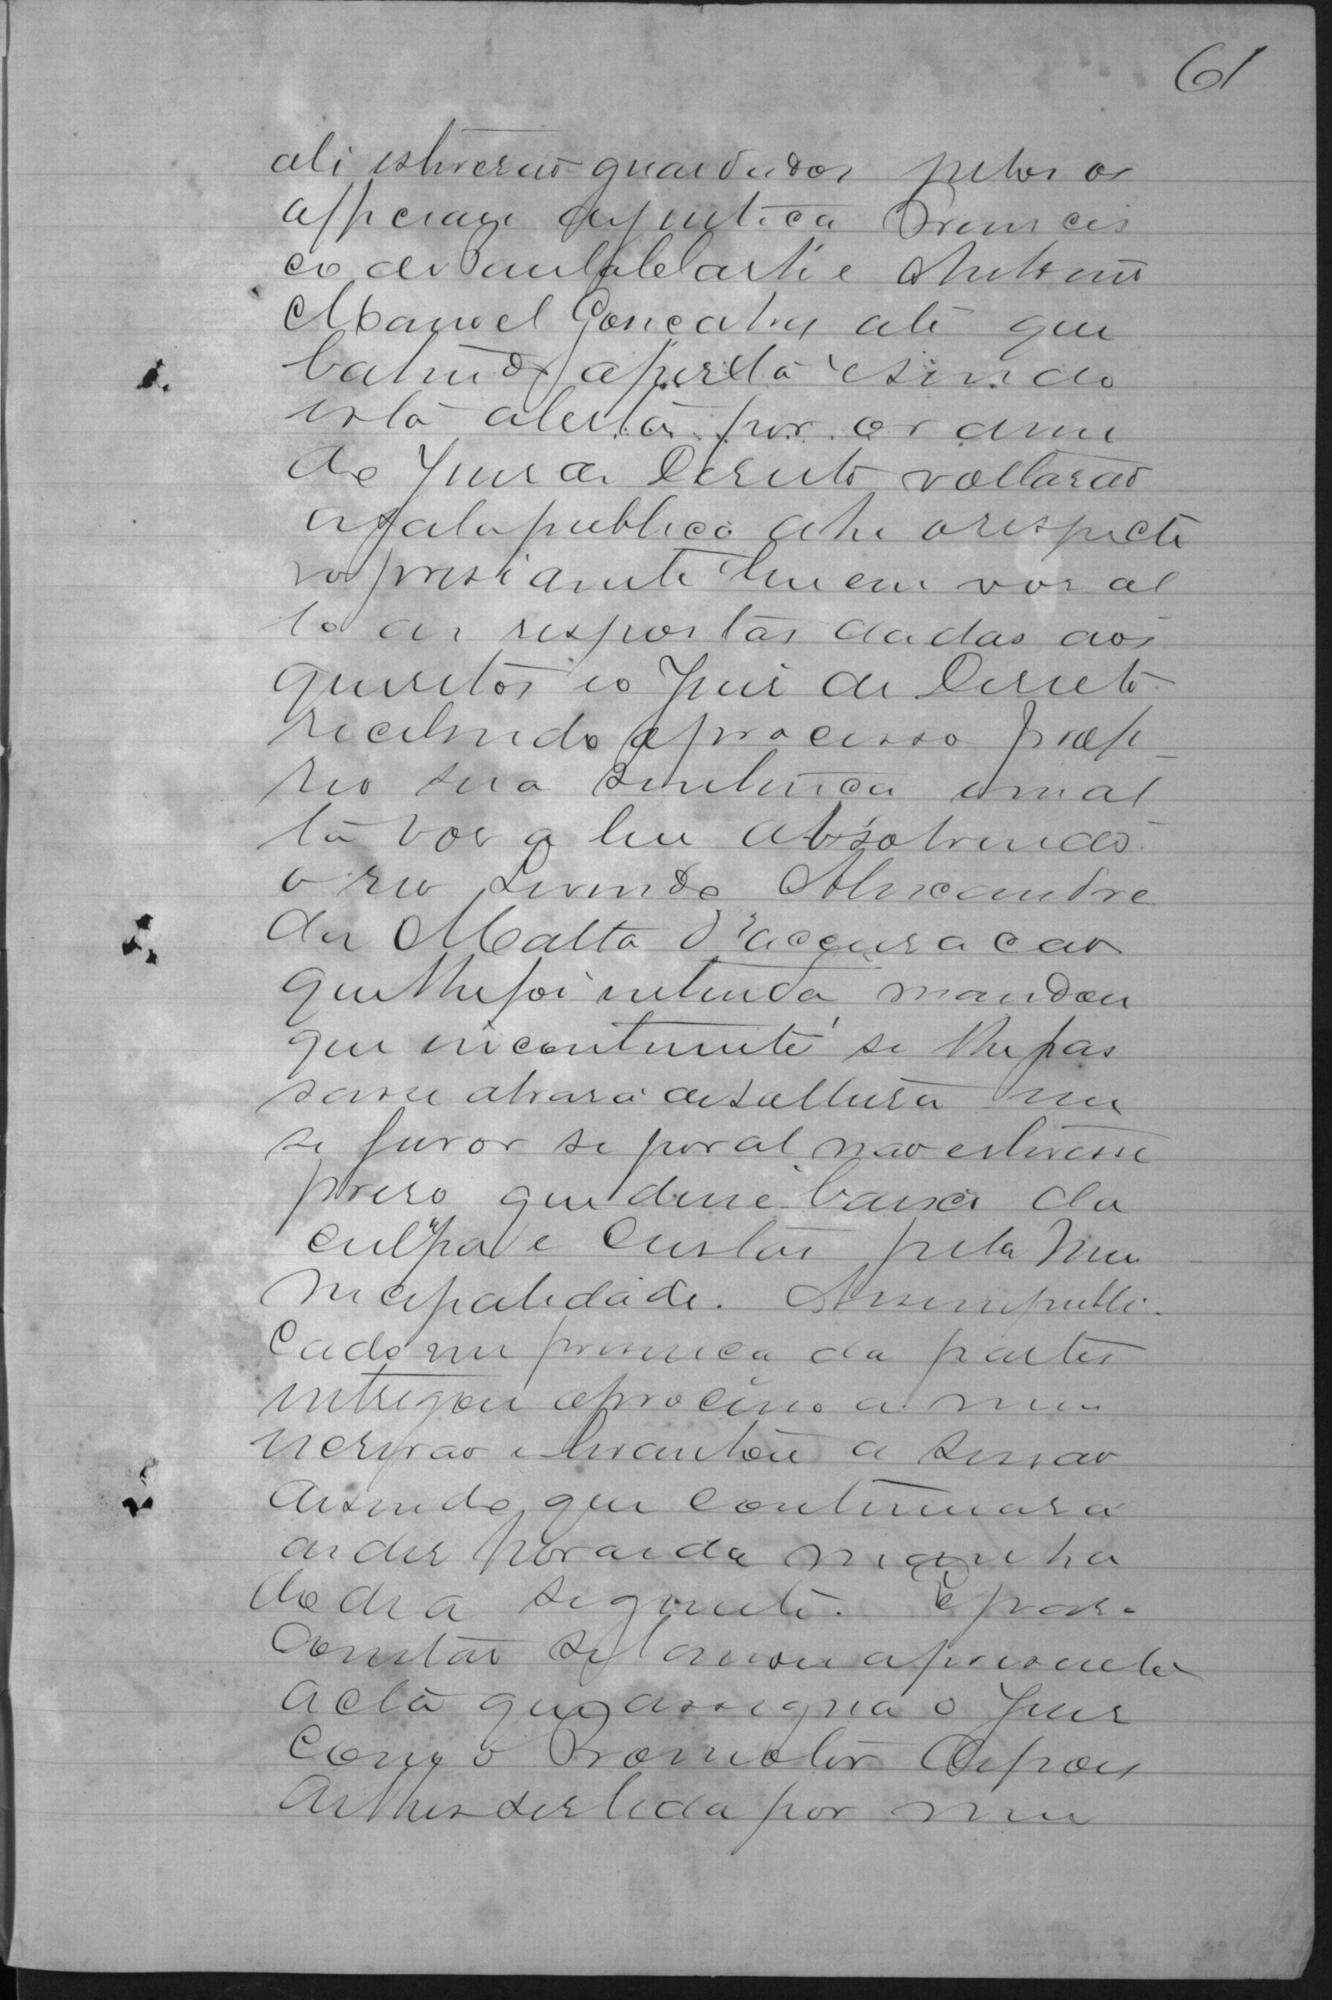 61
ali estiverão guardados pelos of
officiaes de justica Francis
co de Paula e Antonio
Manoel Gonçalves até que
batendo aporta esendo
esta aberta por ordem
do Juiz de Direito voltarão
a sala publica ahi o respecti
vo presidente leu em voz al
ta as respostas dadas aos
quesitos e o Juiz de Direito
recebendo o processo profe
rio sua sentença em al
ta voz a leu absolvendo
o reo Lirindo Alexandre
da Matta d'accusacão
que lhe foi intentada mandou
que incontinente se lhe pas
sasse alvará de soltura em
se favor se por al não estivesse
preso que desse baixa da
culpa e Custas pela Mu
nicipalidade. Assim publi
cado em presença da partes
entregou oprocesso a mim
escrivão e levantou a sessão
disendo que continuara
as des horas da manha
do dia seguinte. E para
constar se lavrou apresente
acta que assigna o Juiz
com o Promotor depois
de lhes ser lida por mim